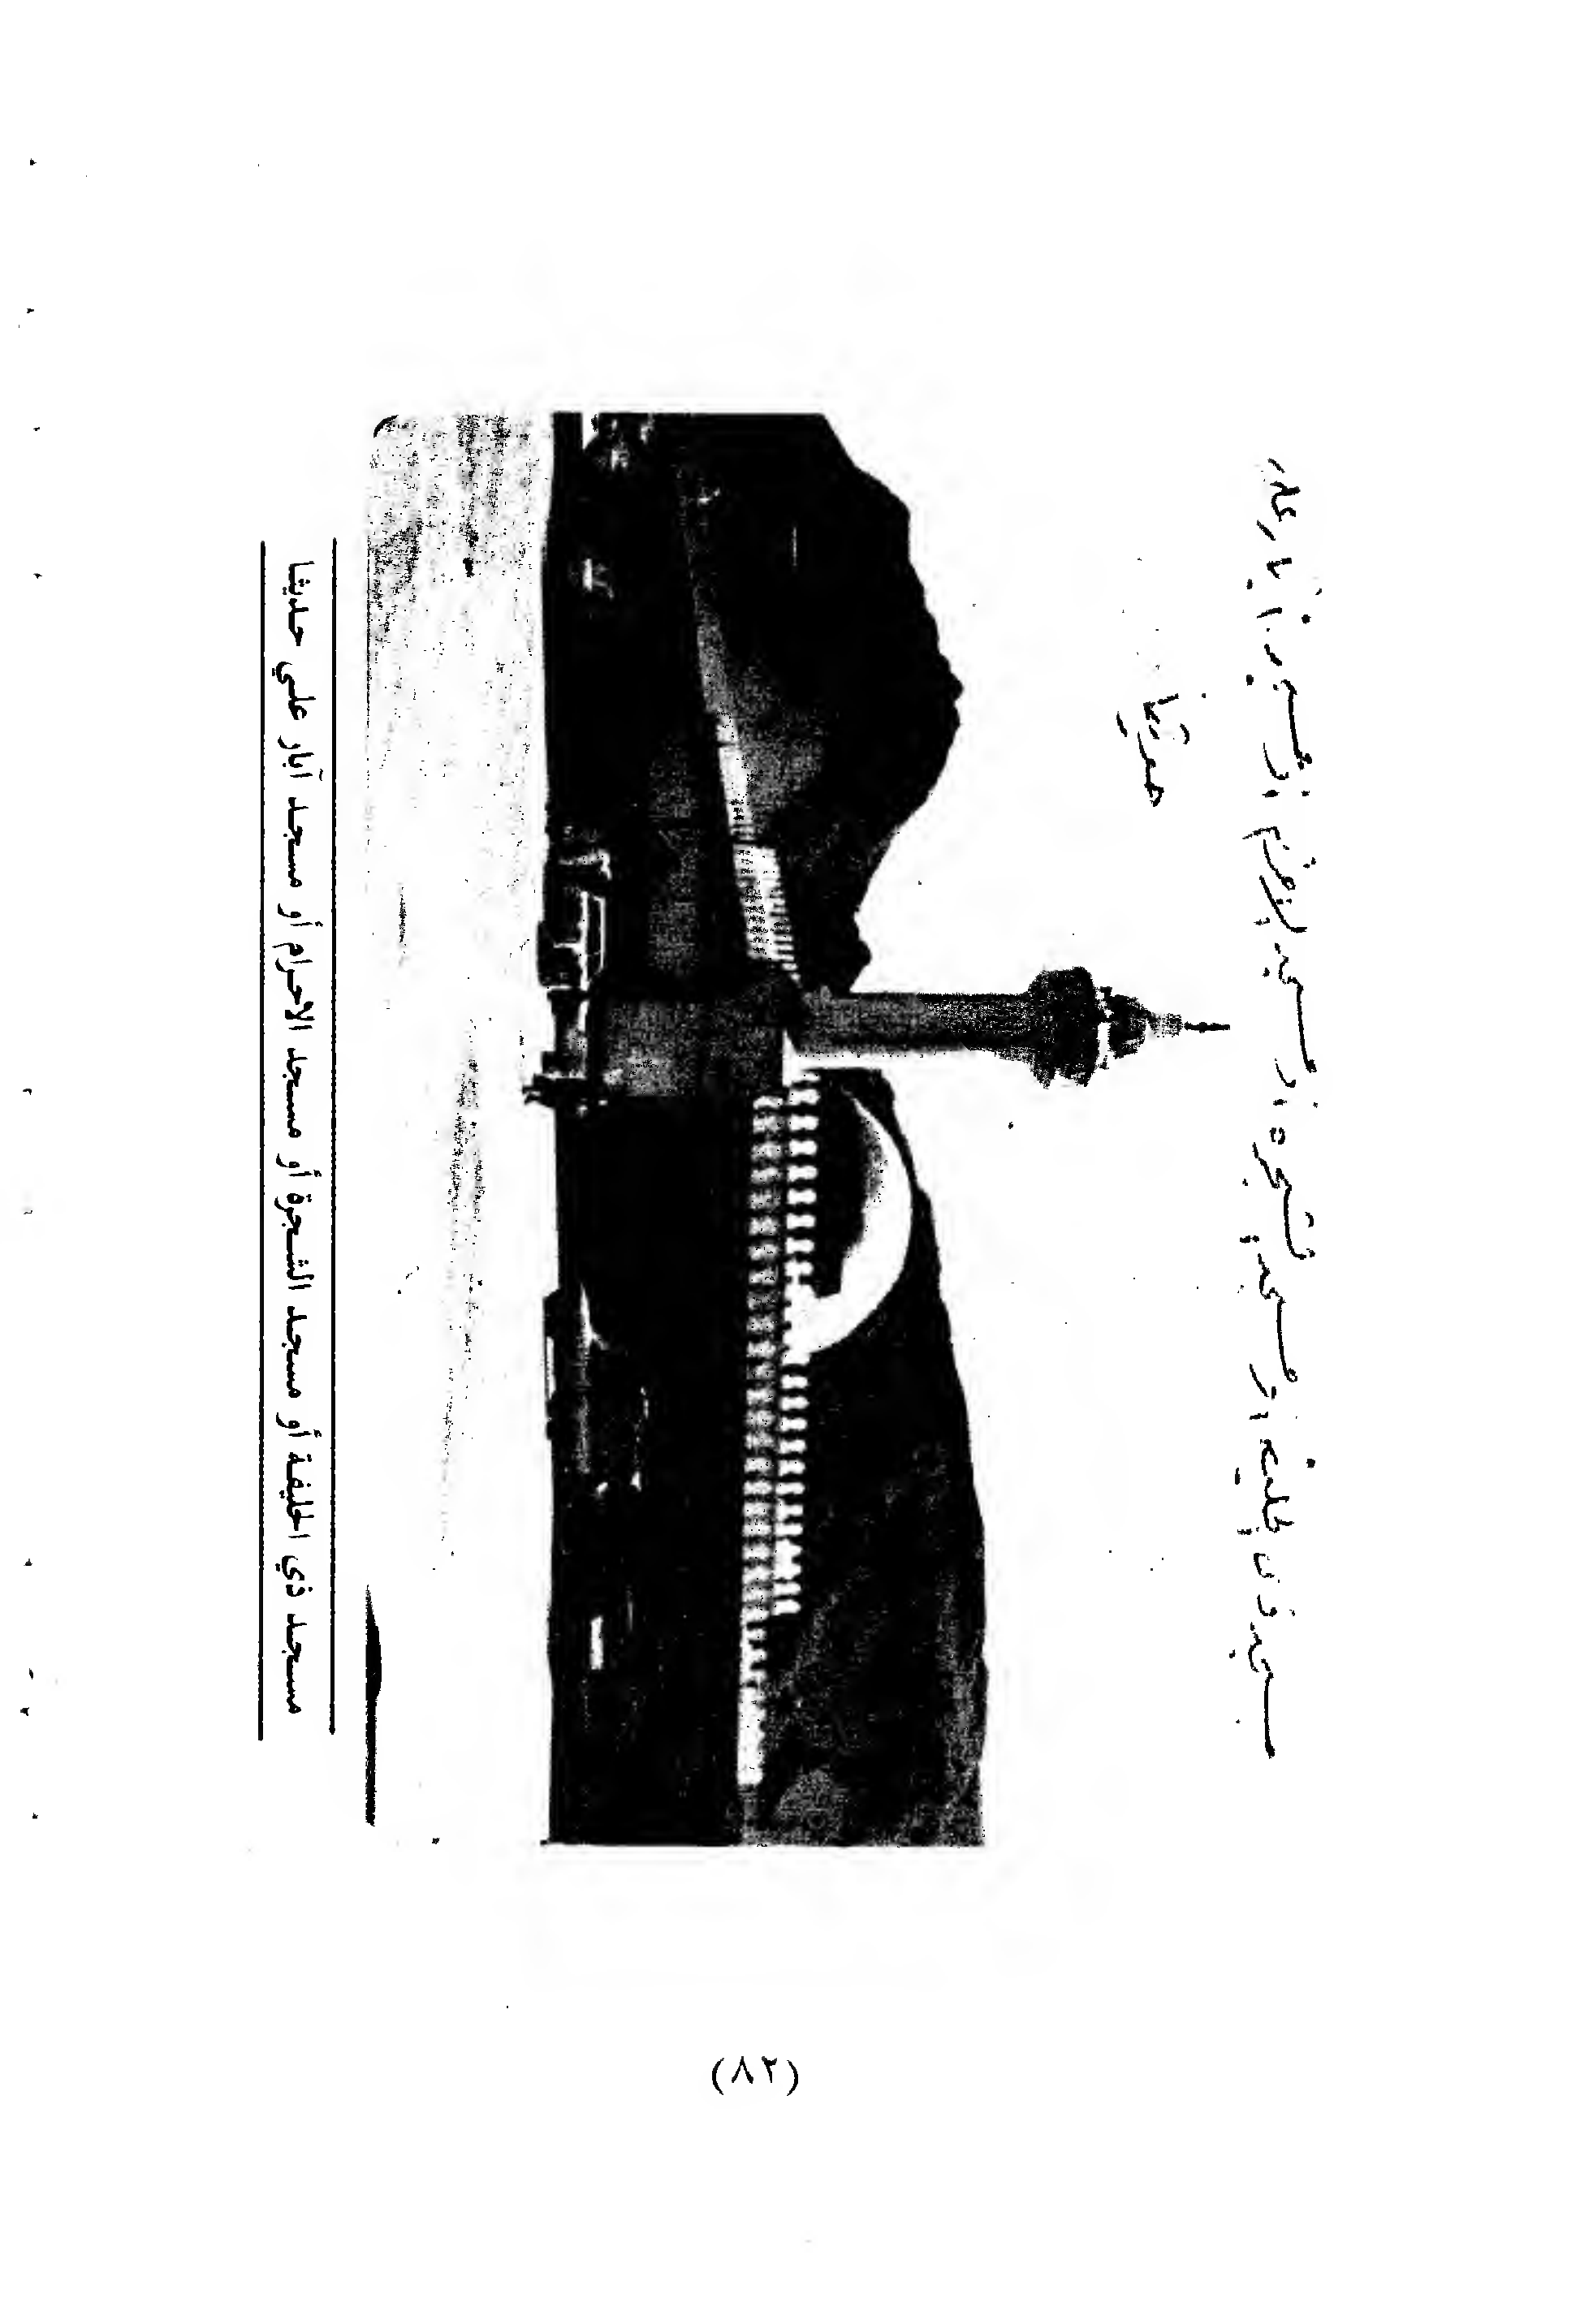 مسجد ذي الحليفة أو مسجد الشجرة أو مسجد الاحرام أو مسجد آبار علي
حديثا
مسجد ذي الحليفة أو مسجد الشجرة أو مسجد الاحرام أو مسجد آبار علي حديثا
(٨٢)